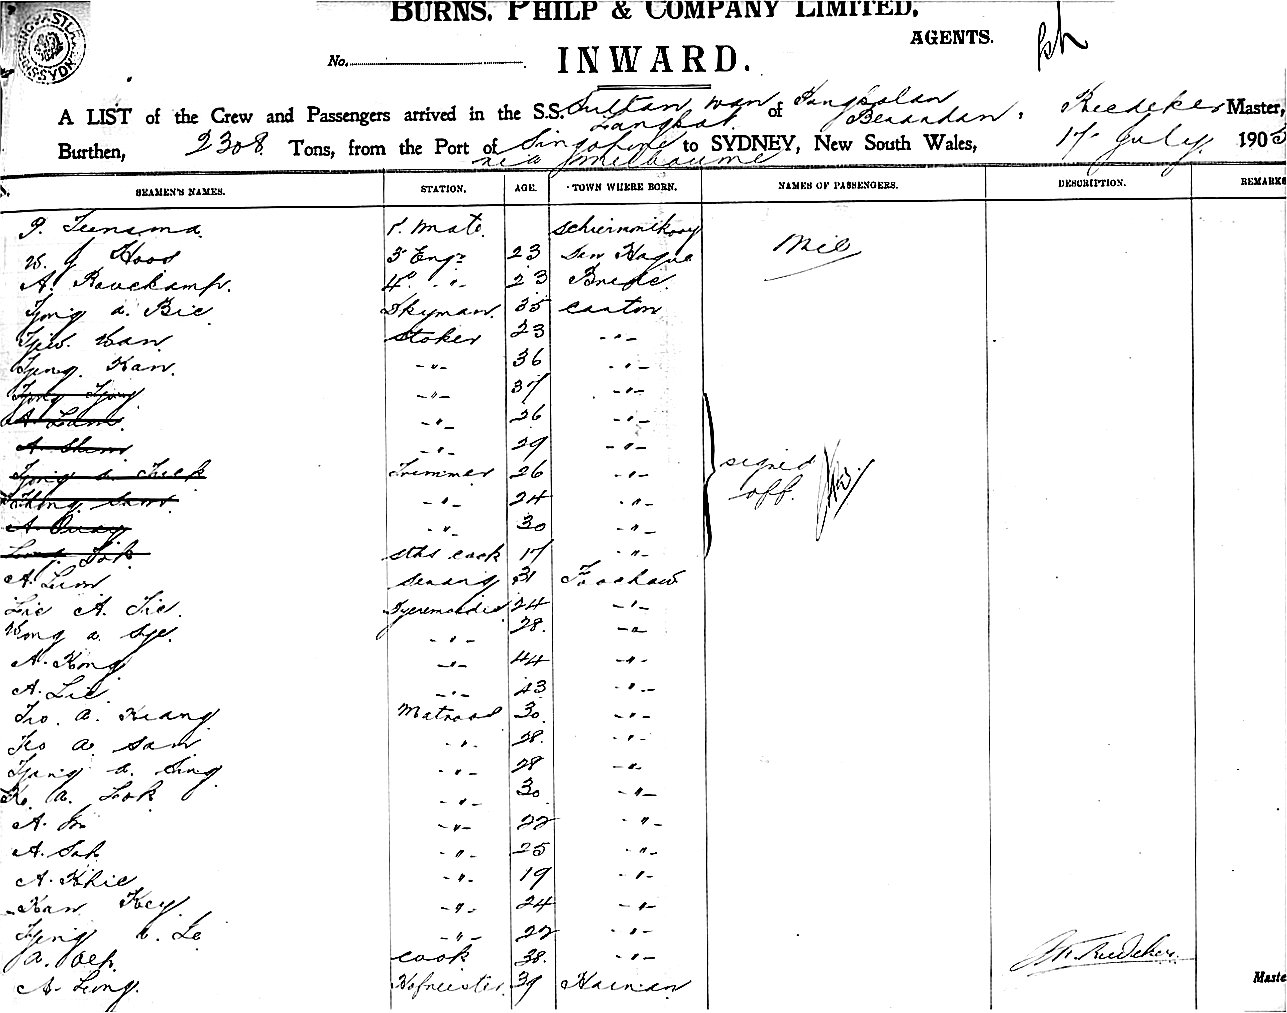 BURNS, PHILP & COMPANY LIMITED,
AGENTS.
No.
INWARD.
A LIST of the Crew and Passengers arrived in the S.S. Sultan van Langkat of Pangkalan Berandan, Reedeker Master,
Burthen, 2308 Tons, from the Port of Singapore via Melbourne to SYDNEY, New South Wales, 17 July 1903
SEAMEN'S NAMES. STATION. AGE. TOWN WHERE BORN. NAMES OF PASSENGERS. DESCRIPTION. REMARKS
P. Teensma 1. Mate Schiermonikoog Nil
W. J. Hoos 3e Engr 23 Den Hague
A. Rouckamp. 4e -"- 23 Breda
Tjong a. Bie Dkyman 35 canton
Tjio. Wan stoker 23 -"-
Tjeng Kan. -"- 36 -"-
Tjong Tjong -"- 37 -"-
A. Lam -"- 26 -"-
A. Shem -"- 29 -"-
Tjong a. Teck Trimmer 26 -"- signed
-"- 24 -"- off.
A. Quay -"- 30 -"-
Sok sths cook 17 -"-
A. Lim Serang 31 Foochow
Lie A. Tie. 24 -"-
Wong a. Sye. -"- 28. -"-
A. Kong -"- 44 -"-
A. Lie -"- 43 -"-
Tio. a. Kiang Matroos 30. -"-
Teo a. Sam -"- 28. -"-
Tjang a. Sing -"- 28 -"-
Ko a. Lok -"- 30 -"-
A. -"- 22 -"-
A. Sok -"- 25 -"-
A. Khie -"- 19 -"-
Kan Key -"- 24 -"-
Tjeng a. Le -"- 22 -"-
A. cook 38. -"-
A. Leong. Hofmeister 39 Hainan Maste